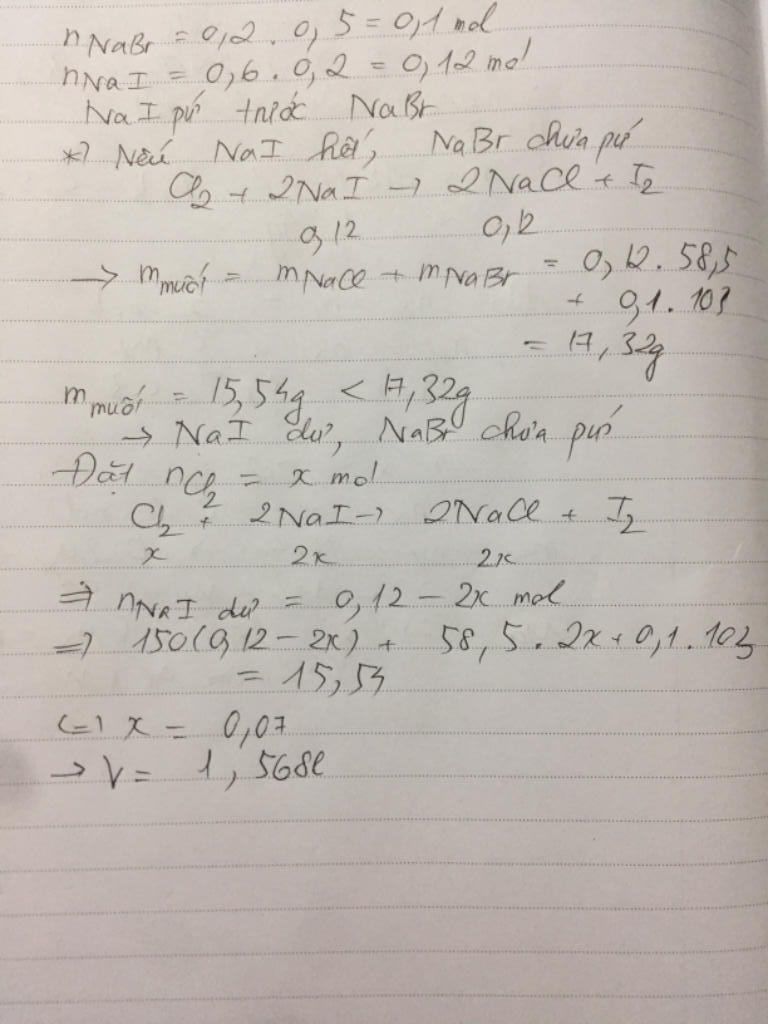 nNaBr = 0,2 . 0,5 = 0,1 mol
nNaI = 0,6 . 0,2 = 0,12 mol
NaI pứ trước NaBr
*) Nếu NaI hết, NaBr chưa pứ
Cl2 + 2NaI → 2NaCl + I2
0,12 0,12
→ mmuối = mNaCl + mNaBr = 0,12. 58,5
+ 0,1. 103
= 17,32g
mmuối = 15,54g < 17,32g
→ NaI dư, NaBr chưa pứ
Đặt nCl2 = x mol
Cl2 + 2NaI → 2NaCl + I2
x 2x 2x
⇒ nNaI dư = 0,12 − 2x mol
⇒ 150(0,12 − 2x) + 58,5 . 2x + 0,1 . 103
= 15,54
(=) x = 0,07
→ V = 1,568l